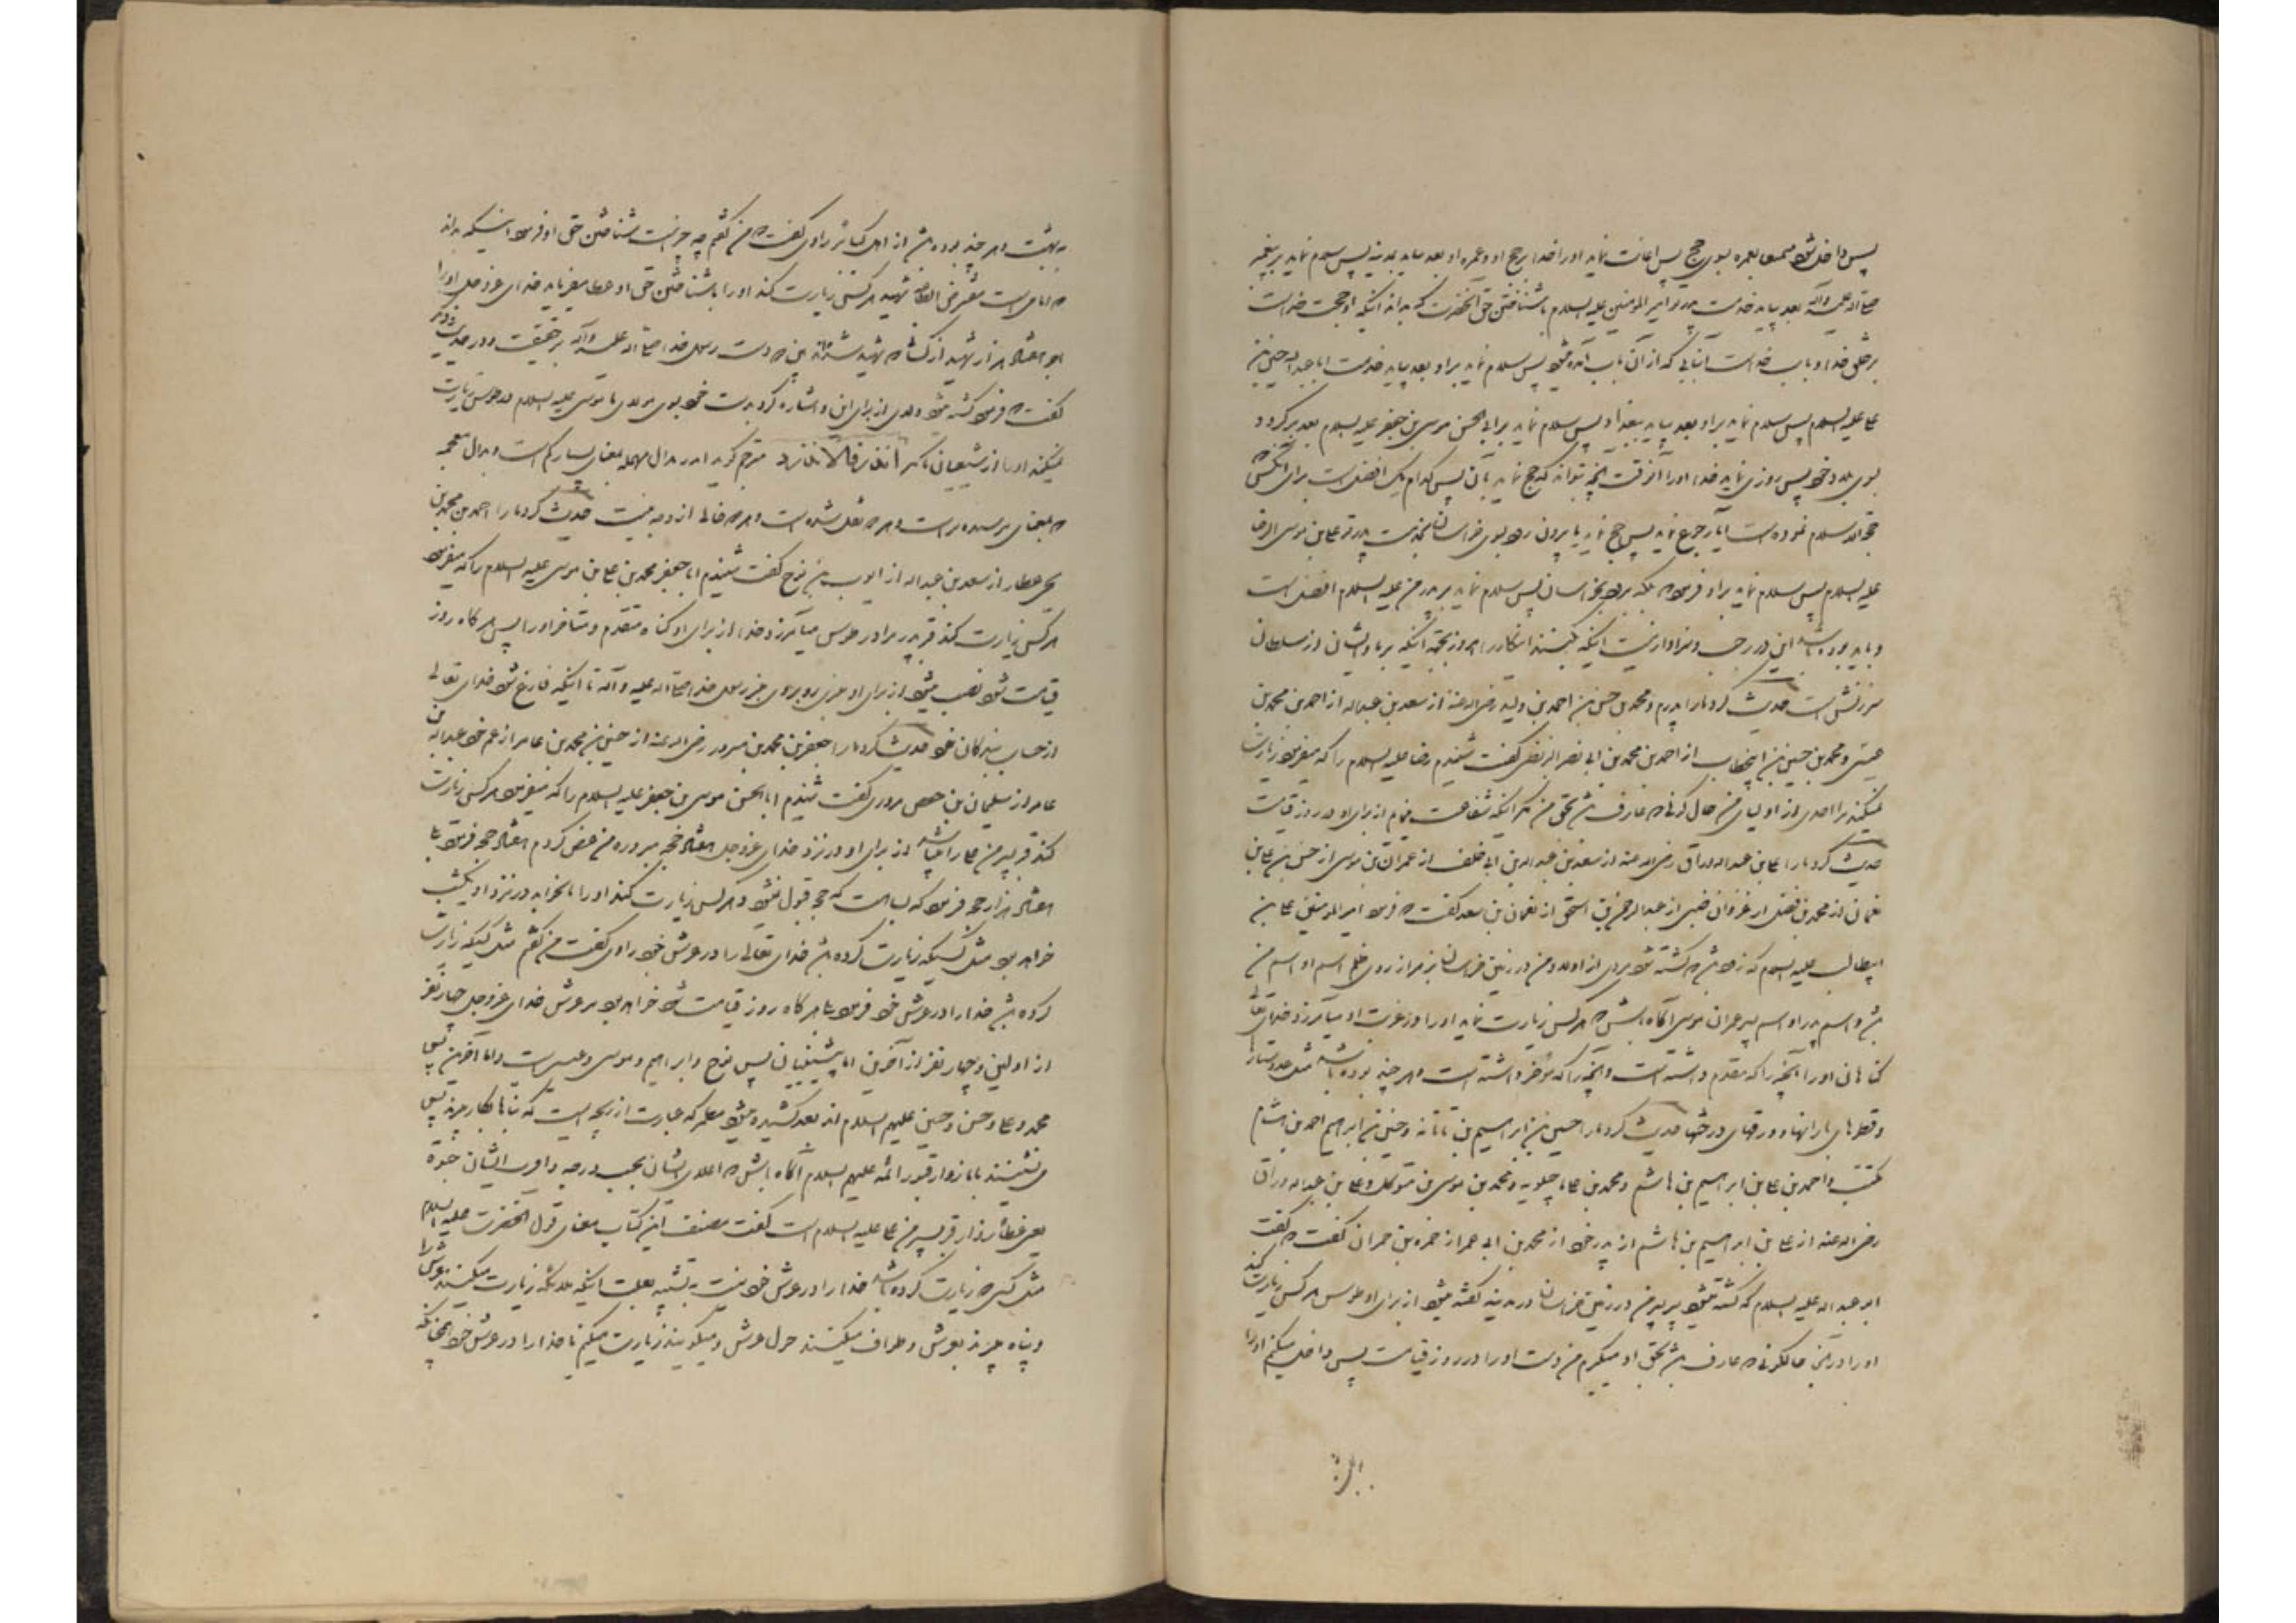 پس داخل شود متمتعا بعمره بسوی حج پس اعانت نماید او را خدا بر حج او و عمره او بعد بیاید بمدینه پس سلام نماید بر پیغمبر
صلی الله علیه و آله بعد بیاید خدمت پدر تو امیر المومنین علیه السلام با شناختن حق آنحضرت که بداند اینکه او حجت خداست
بر خلق خدا و باب خداست آنبابی که از آن باب آمده میشود پس سلام نماید بر او بعد بیاید خدمت ابا عبد الله حسین بن
علی علیه السلام پس سلام نماید بر او بعد بیاید ببغداد پس سلام نماید بر ابی الحسن موسی بن جعفر علیه السلام بعد برگردد
بسوی بلد خود پس روزی نماید خدا او را آنوقت آنچه بتواند که حج نماید بآن پس کدام یک افضل است برای آنکس که
حجة الاسلام نموده است آیا رجوع نماید پس حج نماید یا بیرون رود بسوی خراسان بخدمت پدر تو علی بن موسی الرضا
علیه السلام پس سلام نماید بر او فرمود بلکه برود بخراسان پس سلام نماید بر پدر من علیه السلام افضل است
و باید بوده باشد این در رجب و سزاوار نیست اینکه بکنید اینکار را امروز بجهة اینکه بر ما و بر شما از سلطان
سرزنش است حدیث کرد ما را پدرم و محمد بن حسن بن احمد بن ولید رضی الله عنه از سعد بن عبد الله از احمد بن محمد بن
عیسی و محمد بن حسین بن ابیخطاب از احمد بن محمد بن ابی نصر البزنطی گفت شنیدم رضا علیه السلام را که میفرمود زیارت
نمیکند مرا احدی از اولیای من حال کونی که عارف باشد بحق من مگر اینکه شفاعت مینمایم از برای او در روز قیامت
حدیث کرد ما را علی بن عبد الله وراق رضی الله عنه از سعد بن عبد الله بن ابی خلف از عمران بن موسی از حسن بن علی بن
نعمان از محمد بن فضیل از غزوان ضبی از عبد الرحمن بن اسحق از نعمان بن سعد گفت که فرمود امیر المومنین علی بن
ابیطالب علیه السلام که زود باشد که کشته شود مردی از اولاد من در زمین خراسان بزهر از روی ظلم اسم او اسم من
باشد و اسم پدر او اسم پسر عمران موسی آگاه باشید که هر کس زیارت نماید او را در غربت او میآمرزد خدای تعالی
گناهان او را آنچه را که مقدم داشته است و آنچه را که مؤخر داشته است و هر چند بوده باشد مثل عدد ستارها
و قطرهای بارانها و ورقهای درختها حدیث کرد ما را حسین بن ابراهیم بن تاتانه و حسین بن ابراهیم احمد بن هشام
مکتب و احمد بن علی بن ابراهیم بن هاشم و محمد بن علی ماجیلویه و محمد بن موسی بن متوکل و علی بن عبد الله وراق
رضی الله عنه از علی بن ابراهیم بن هاشم از پدر خود از محمد بن ابی عمیر از حمزه بن حمران گفت که گفت
ابو عبد الله علیه السلام که کشته میشود پسر پسر من در زمین خراسان در مدینه گفته میشود از برای او طوس هر کس زیارت کند
او را در آن حالکونی که عارف باشد بحق او میگیرم من دست او را در روز قیامت پس داخل میکنم او را
به بهشت و هر چند بوده باشد از اهل کبائر راوی گفت که من گفتم چه چیز است شناختن حق او فرمود اینکه بداند
که امامی است مفترض الطاعه شهید هر کس زیارت کند او را با شناختن حق او عطا میفرماید خدای عز و جل او را
اجر هفتاد هزار شهید از کسانیکه شهید شده‌اند پیش دست رسول خدا صلی الله علیه و آله بر حقیقت و در حدیث دیگر
گفت که فرمود کشته میشود ولدی از برای این و اشاره کرد بدست خود بسوی مولای ما موسی علیه السلام در طوس زیارت
نمیکند او را از شیعیان ما مگر الاندر فالاندر مترجم گوید اندر بدال مهمله بمعنای بسیار کم است و بذال معجمه
که بمعنای ترسیده تر است و هر چه نقل شده است و هر چه خالی از وجه نیست حدیث کرد ما را احمد بن محمد بن
یحیی عطار از سعد بن عبد الله از ایوب بن نوح گفت شنیدم ابا جعفر محمد بن علی بن موسی علیه السلام را که میفرمود
هر کس زیارت کند قبر پدر مرا در طوس میآمرزد خدا از برای او گناه متقدم و متاخر او را پس هر گاه روز
قیامت شود نصب میشود از برای او منبری روبروی منبر رسول خدا صلی الله علیه و آله تا اینکه فارغ شود خدای تعالی
از حساب بندگان خود حدیث کرد ما را جعفر بن محمد بن مسرور رضی الله عنه از حسین بن محمد بن عامر از عم خود عبد الله بن
عامر از سلیمان بن حفص مروزی گفت شنیدم ابا الحسن موسی بن جعفر علیه السلام را که میفرمود هر کس زیارت
کند قبر پسر من علی را میباشد از برای او در نزد خدای عز و جل هفتاد حجه مبروره من عرض کردم هفتاد حجه فرمود بلی
هفتاد هزار حجه فرمود که بسا هست که حج قبول نشود و هر کس زیارت کند او را یا بخوابد در نزد او یکشب
خواهد بود مثل کسیکه زیارت کرده باشد خدای تعالی را در عرش خود راوی گفت من گفتم مثل کسیکه زیارت
کرده باشد خدا را در عرش خود فرمود بلی هر گاه روز قیامت شود خواهد بود بر عرش خدای عز و جل چهار نفر
از اولین و چهار نفر از آخرین اما پیشینیان پس نوح و ابراهیم و موسی و عیسی است و اما آخرین پس
محمد و علی و حسن و حسین علیهم السلام اند بعد کشیده میشود مطمر که عبارت از ریسمانی است که بناها بکار میبرند پس
می نشینند با ما زوار قبور ائمه علیهم السلام آگاه باشید که اعلای ایشان بحسب درجه و اقرب ایشان حبوة
یعنی عطا زوار قبر پسر من علی علیه السلام است گفت مصنف این کتاب معنای قول آنحضرت علیه السلام
مثل کسی که زیارت کرده باشد خدا را در عرش خود نیست بتشبیه بعلت اینکه ملائکه زیارت میکنند عرش را
و پناه میبرند بعرش و طواف میکنند حول عرش و میگویند زیارت میکنیم ما خدا را در عرش خود همچنانکه